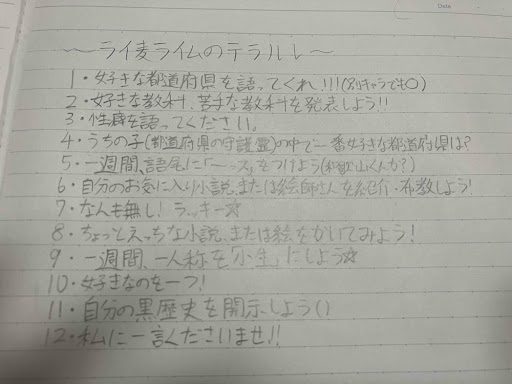 〜ライ麦ライムのテラルレ〜
1・好きな都道府県を語ってくれ!!!(別キャラでも○)
2・好きな教科、苦手な教科を発表しよう!!
3・性癖を語ってください。
4・うちの子(都道府県の守護霊)の中で一番好きな都道府県は?
5・一週間、語尾に「〜っス」をつけよう(和歌山くんか?)
6・自分のお気に入り小説、または絵師さんを紹介・布教しよう!
7・なんも無し!ラッキー☆
8・ちょっとえっちな小説、または絵をかいてみよう!
9・一週間、一人称を「小生」にしよう☆
10・好きなのを一つ!
11・自分の黒歴史を開示しよう()
12・私に一言くださいませ!!
Date